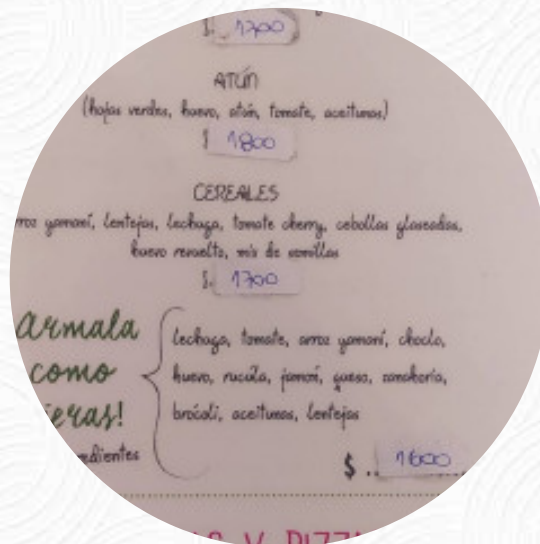 $. 1700
ATÚN
(hojas verdes, huevo, atún, tomate, aceitunas)
$ 1800
CEREALES
yamaní, lentejas, lechuga, tomate cherry, cebollas glaseadas,
huevo revuelto, mix de semillas
$. 1700
Armala
como
lechuga, tomate, arroz yamaní, choclo,
huevo, rucula, jamón, queso, zanahoria,
brócoli, aceitunas, lentejas
$ .. 1600